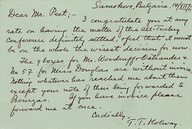 Samokov, Bulgaria, 14/
Dear Mr. Peet,—
I congratulate you at
any rate on having the matter of the All-Turkey
Conference definitely settled, and that it must
be on the whole the wisest decision for now.
The 9 boxes for Mr. Woodruff, Ostrander &
No 57 for Miss Douglas are without more
Nothing whatever has reached me about them
except your note of their being forwarded to
Bourgas. If you have invoice please
forward me at once.
Cordially
T. T. Holway.